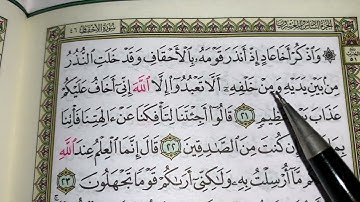 سُورَةُ الأَحْقَافِ ٤٦
وَاذْكُرْ أَخَا عَادٍ إِذْ أَنذَرَ قَوْمَهُ بِالْأَحْقَافِ وَقَدْ خَلَتِ النُّذُرُ
مِنْ بَيْنِ يَدَيْهِ وَمِنْ خَلْفِهِ أَلَّا تَعْبُدُوا إِلَّا اللَّهَ إِنِّي أَخَافُ عَلَيْكُمْ
عَذَابَ يَوْمٍ عَظِيمٍ ٢١ قَالُوا أَجِئْتَنَا لِتَأْفِكَنَا عَنْ آلِهَتِنَا فَأْتِنَا
إِن كُنتَ مِنَ الصَّادِقِينَ ٢٢ قَالَ إِنَّمَا الْعِلْمُ عِندَ اللَّهِ
مَّا أُرْسِلْتُ بِهِ وَلَٰكِنِّي أَرَاكُمْ قَوْمًا تَجْهَلُونَ ٢٣